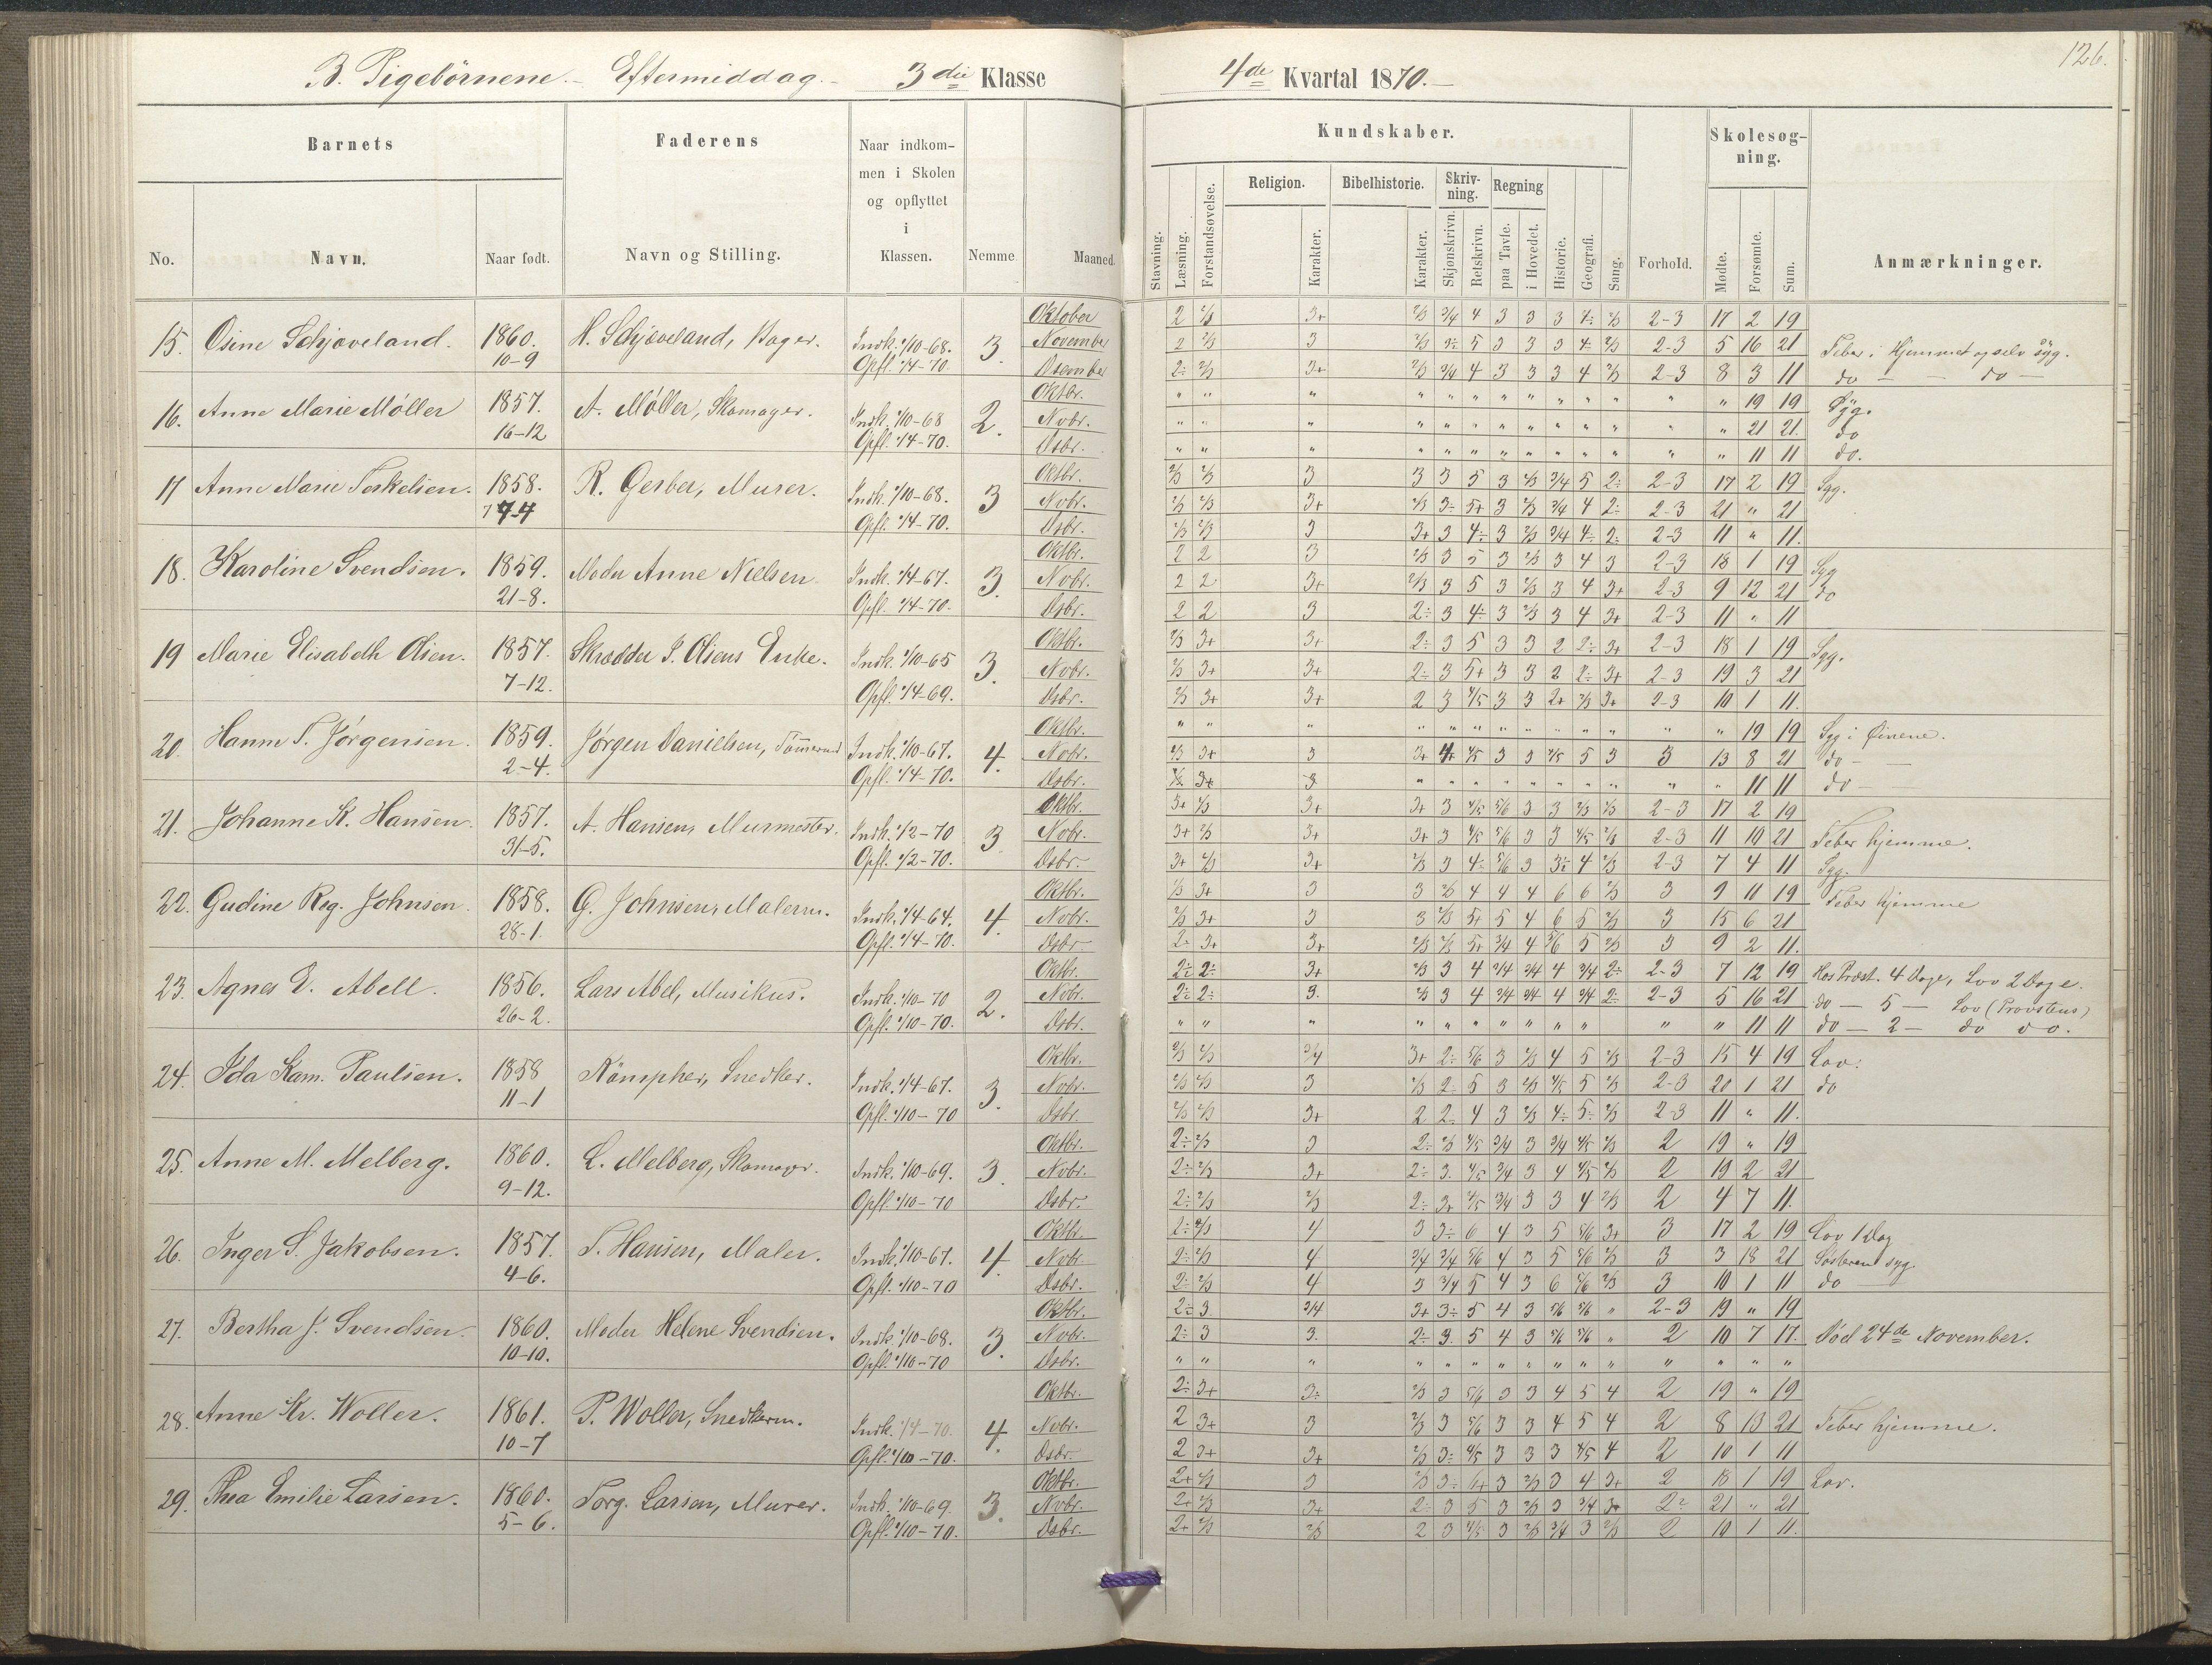 126.
B. Pigebörnene - Eftermiddag - 3die Klasse 4de Kvartal 1870.
Barnets Faderens Naar indkommen i Skolen og opflyttet i Klassen. Nemme Maaned. Kundskaber. Forhold. Skolesøgning. Anmærkninger.
No. Navn. Naar født. Navn og Stilling.
Stavning. Læsning. Forstandsøvelse. Religion. Karakter. Bibelhistorie. Karakter. Skrivning. Skjønskrivn. Retskrivn. Regning paa Tavle. i Hovedet. Historie. Geografi. Sang. Mødte. Forsømte. Sum.
15. Osine Schjøveland. 1860. H. Schjøveland, Bager. Indk. 1/10-68. 3. Oktober 2 2/3 3+ 2/3 3/4 4 3 3 3 4÷ 2/3 2-3 17 2 19
10-9 Opfl. 1/4-70. November 2 2/3 3 2/3 3÷ 5 3 3 3 4 2/3 2-3 5 16 21 Feber i Hjemmet og selv syg.
Desember 2÷ 2/3 3+ 2/3 3/4 4 3 3 3 4 2/3 2-3 8 3 11 do — — do —
16. Anne Marie Møller 1857. A. Møller, Skomager. Indk. 1/10-68 2. Oktbr. " 19 19 Syg.
16-12 Opfl. 1/4-70. Nvbr. " 21 21. do
Dsbr. " 11 11 do.
17 Anne Marie Terkelsen. 1858. R. Gerber, Murer. Indk. 1/10-68. 3 Oktbr. 2/3 2/3 3 3 3 5 3 2/3 3/4 5 2÷ 2-3 17 2 19 Syg.
7-4 Opfl. 1/4-70. Nvbr. 2/3 2/3 3+ 2/3 3÷ 5+ 3 2/3 3/4 4 2÷ 2-3 21 " 21
Dsbr. 2/3 2/3 3 3+ 3 4÷ 3 2/3 3/4 4÷ 2÷ 2-3 11 " 11.
18. Karoline Svendsen. 1859. Moder Anne Nielsen Indk. 1/4-67. 3. Oktbr. 2 2 3 2/3 3 5 3 2/3 3 4 3 2-3 18 1 19 Syg
21-8. Opfl. 1/4-70. Nvbr. 2 2 3+ 2/3 3 5 3 2/3 3 4 3+ 2-3 9 12 21 do
Dsbr. 2 2 3 2÷ 3 4÷ 3 2/3 3 4 3+ 2-3 11 " 11
19 Marie Elisabeth Olsen. 1857. Skrædder J. Olsens Enke. Indk. 1/10-65 3. Oktbr. 2/3 3+ 3+ 2÷ 3 5 3 3 2 2÷ 3+ 2-3 18 1 19 Syg.
7-12. Opfl. 1/4-69. Nvbr. 2/3 3+ 3+ 2÷ 3 5+ 3 3 2 2÷ 3+ 2-3 19 3 21
Dsbr. 2/3 3+ 3+ 2 3 4/5 3 3 2+ 2/3 3+ 2-3 10 1 11.
20. Hanne T. Jørgensen. 1859. Jørgen Danielsen, Indk. 1/10-67. 4. Oktbr. " 19 19 Syg i Öinene.
2-4. Opfl. 1/4-70. Nvbr. 2/3 3+ 3 3+ 4+ 4/5 3 3 4/5 5 3 3 13 8 21 do —
Dsbr. " 11 11 do —
21. Johanne K. Hansen. 1857. A. Hansen, Murmester. Indk. 1/2-70 3 Oktbr. 3+ 2/3 3+ 3+ 3 4/5 5/6 3 3 2/3 2/3 2-3 17 2 19
31-5. Opfl. 1/2-70. Nvbr. 3+ 2/3 3+ 3+ 3 4/5 5/6 3 3 4/5 2/3 2-3 11 10 21 Feber hjemme.
Dsbr. 3+ 2/3 3+ 2/3 3 4÷ 5/6 3 3÷ 4 2/3 2-3 7 4 11 Syg.
22. Gudine Reg. Johnsen 1858. G. Johnsen, Malerm. Indk. 1/4-64. 4. Oktbr. 2/3 3+ 3 3 2/3 4 4 4 6 6 2/3 3 9 10 19 Feber hjemme
28-1. Opfl. 1/4-70. Nvbr. 2/3 3+ 3 3 2/3 5+ 5 4 6 5 2/3 3 15 6 21
Dsbr. 2÷ 3+ 3+ 2/3 2/3 5+ 3/4 4 5/6 5 2/3 3 9 2 11.
23. Agnes E. Abell. 1856. Lars Abel, Musikus. Indk. 1/10-70 2. Oktbr. 2÷ 2÷ 3+ 2/3 3 4 3/4 3/4 4 3/4 2÷ 2-3 7 12 19 Hos Præst. 4 Dage, Lov 2 Dage.
26-2. Opfl. 1/10-70. Nvbr. 2÷ 2÷ 3. 2/3 3 4 3/4 3/4 4 3/4 2÷ 2-3 5 16 21 do — 5 — Lov (Provstens)
Dsbr. " 11 11 do — 2 — do do.
24. Ida Kam. Paulsen. 1858 Kämpher, Snedker. Indk. 1/4-67. 3. Oktbr. 2/3 2/3 3/4 3+ 2÷ 5/6 3 2/3 4 5 2/3 2-3 15 4 19 Lov.
11-1 Opfl. 1/10-70 Nvbr. 2/3 2/3 3 2/3 2 5 3 2/3 4/5 5 2/3 2-3 20 1 21 do
Dsbr. 2/3 2/3 3+ 2 2÷ 4 3 2/3 4÷ 5÷ 2/3 2-3 11 " 11.
25. Anne M. Melberg. 1860. L. Melberg, Skomager. Indk. 1/10-69. 3. Oktbr. 2÷ 2/3 3 2÷ 2/3 4/5 3/4 3 3/4 4/5 2/3 2 19 " 19
9-12. Opfl. 1/10-70 Nvbr. 2÷ 2/3 3+ 2÷ 3. 4/5 3/4 3 4 4/5 2/3 2 19 2 21
Dsbr. 2÷ 2/3 2/3 2÷ 3+ 4/5 3/4 3 3 4 2/3 2 4 7 11.
26. Inger S. Jakobsen. 1857. T. Hansen, Maler. Indk. 1/10-67. 4. Oktbr. 2÷ 2/3 4 3 3÷ 6 4 3 5 5/6 3+ 3 17 2 19 Lov 1 Dag
4-6. Opfl. 1/10-70 Nvbr. 2÷ 2/3 4 3/4 3/4 5/6 4 3 5 5/6 2/3 3 3 18 21 Søsteren syg.
Dsbr. 2÷ 2/3 4 3 3/4 5 4 3 6 5/6 2/3 3 10 1 11 do
27. Bertha J. Svendsen. 1860. Moder Helene Svendsen. Indk. 1/10-68. 3. Oktbr. 2÷ 3 3/4 3+ 3÷ 5 4 3 5/6 5/6 " 2-3 19 " 19
10-10. Opfl. 1/10-70 Nvbr. 2÷ 3 3. 2÷ 3. 5 4 3 5/6 5/6 " 2 10 7 17. Död 24de November.
Dsbr. "
28. Anne Kr. Woller. 1861. P. Woller, Snedkerm. Indk. 1/4-70. 4. Oktbr. 2÷ 3+ 3÷ 2/3 3 5/6 3 3 4 5 4 2 19 " 19
10-7 Opfl. 1/10-70. Nvbr. 2 3+ 3 2/3 3 5/6 3 3 4 5 4 2 8 13 21 Feber hjemme.
Dsbr. 2 3+ 3+ 2/3 3÷ 4/5 3 3 3 4/5 4 2 10 1 11
29. Thea Emilie Larsen. 1860. Torg. Larsen, Murer. Indk. 1/10-69. 3. Oktbr. 2+ 2/3 3 2/3 3÷ 4+ 3 2/3 3 4 3+ 2 18 1 19 Lov.
5-6. Opfl. 1/10-70. Nvbr. 2+ 2/3 3+ 2÷ 3 5 3 2/3 3 3/4 3+ 2÷ 21 " 21
Dsbr. 2+ 2/3 2/3 2 3 4/5 3 2/3 3/4 3 2/3 2 10 1 11.